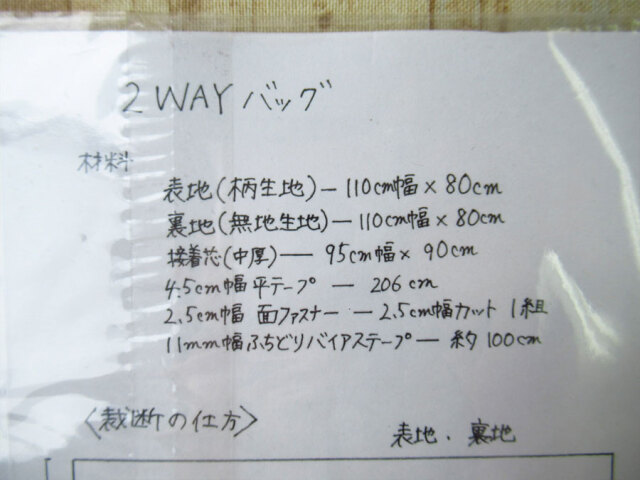 2WAYバッグ
材料
表地(柄生地)ー110cm幅×80cm
裏地(無地生地)ー110cm幅×80cm
接着芯(中厚)ー95cm幅×90cm
4.5cm幅平テープ ー 206cm
2.5cm幅 面ファスナー ー2.5cm幅カット 1組
11mm幅ふちどりバイアステープー 約100cm
〈裁断の仕方〉
表地、裏地